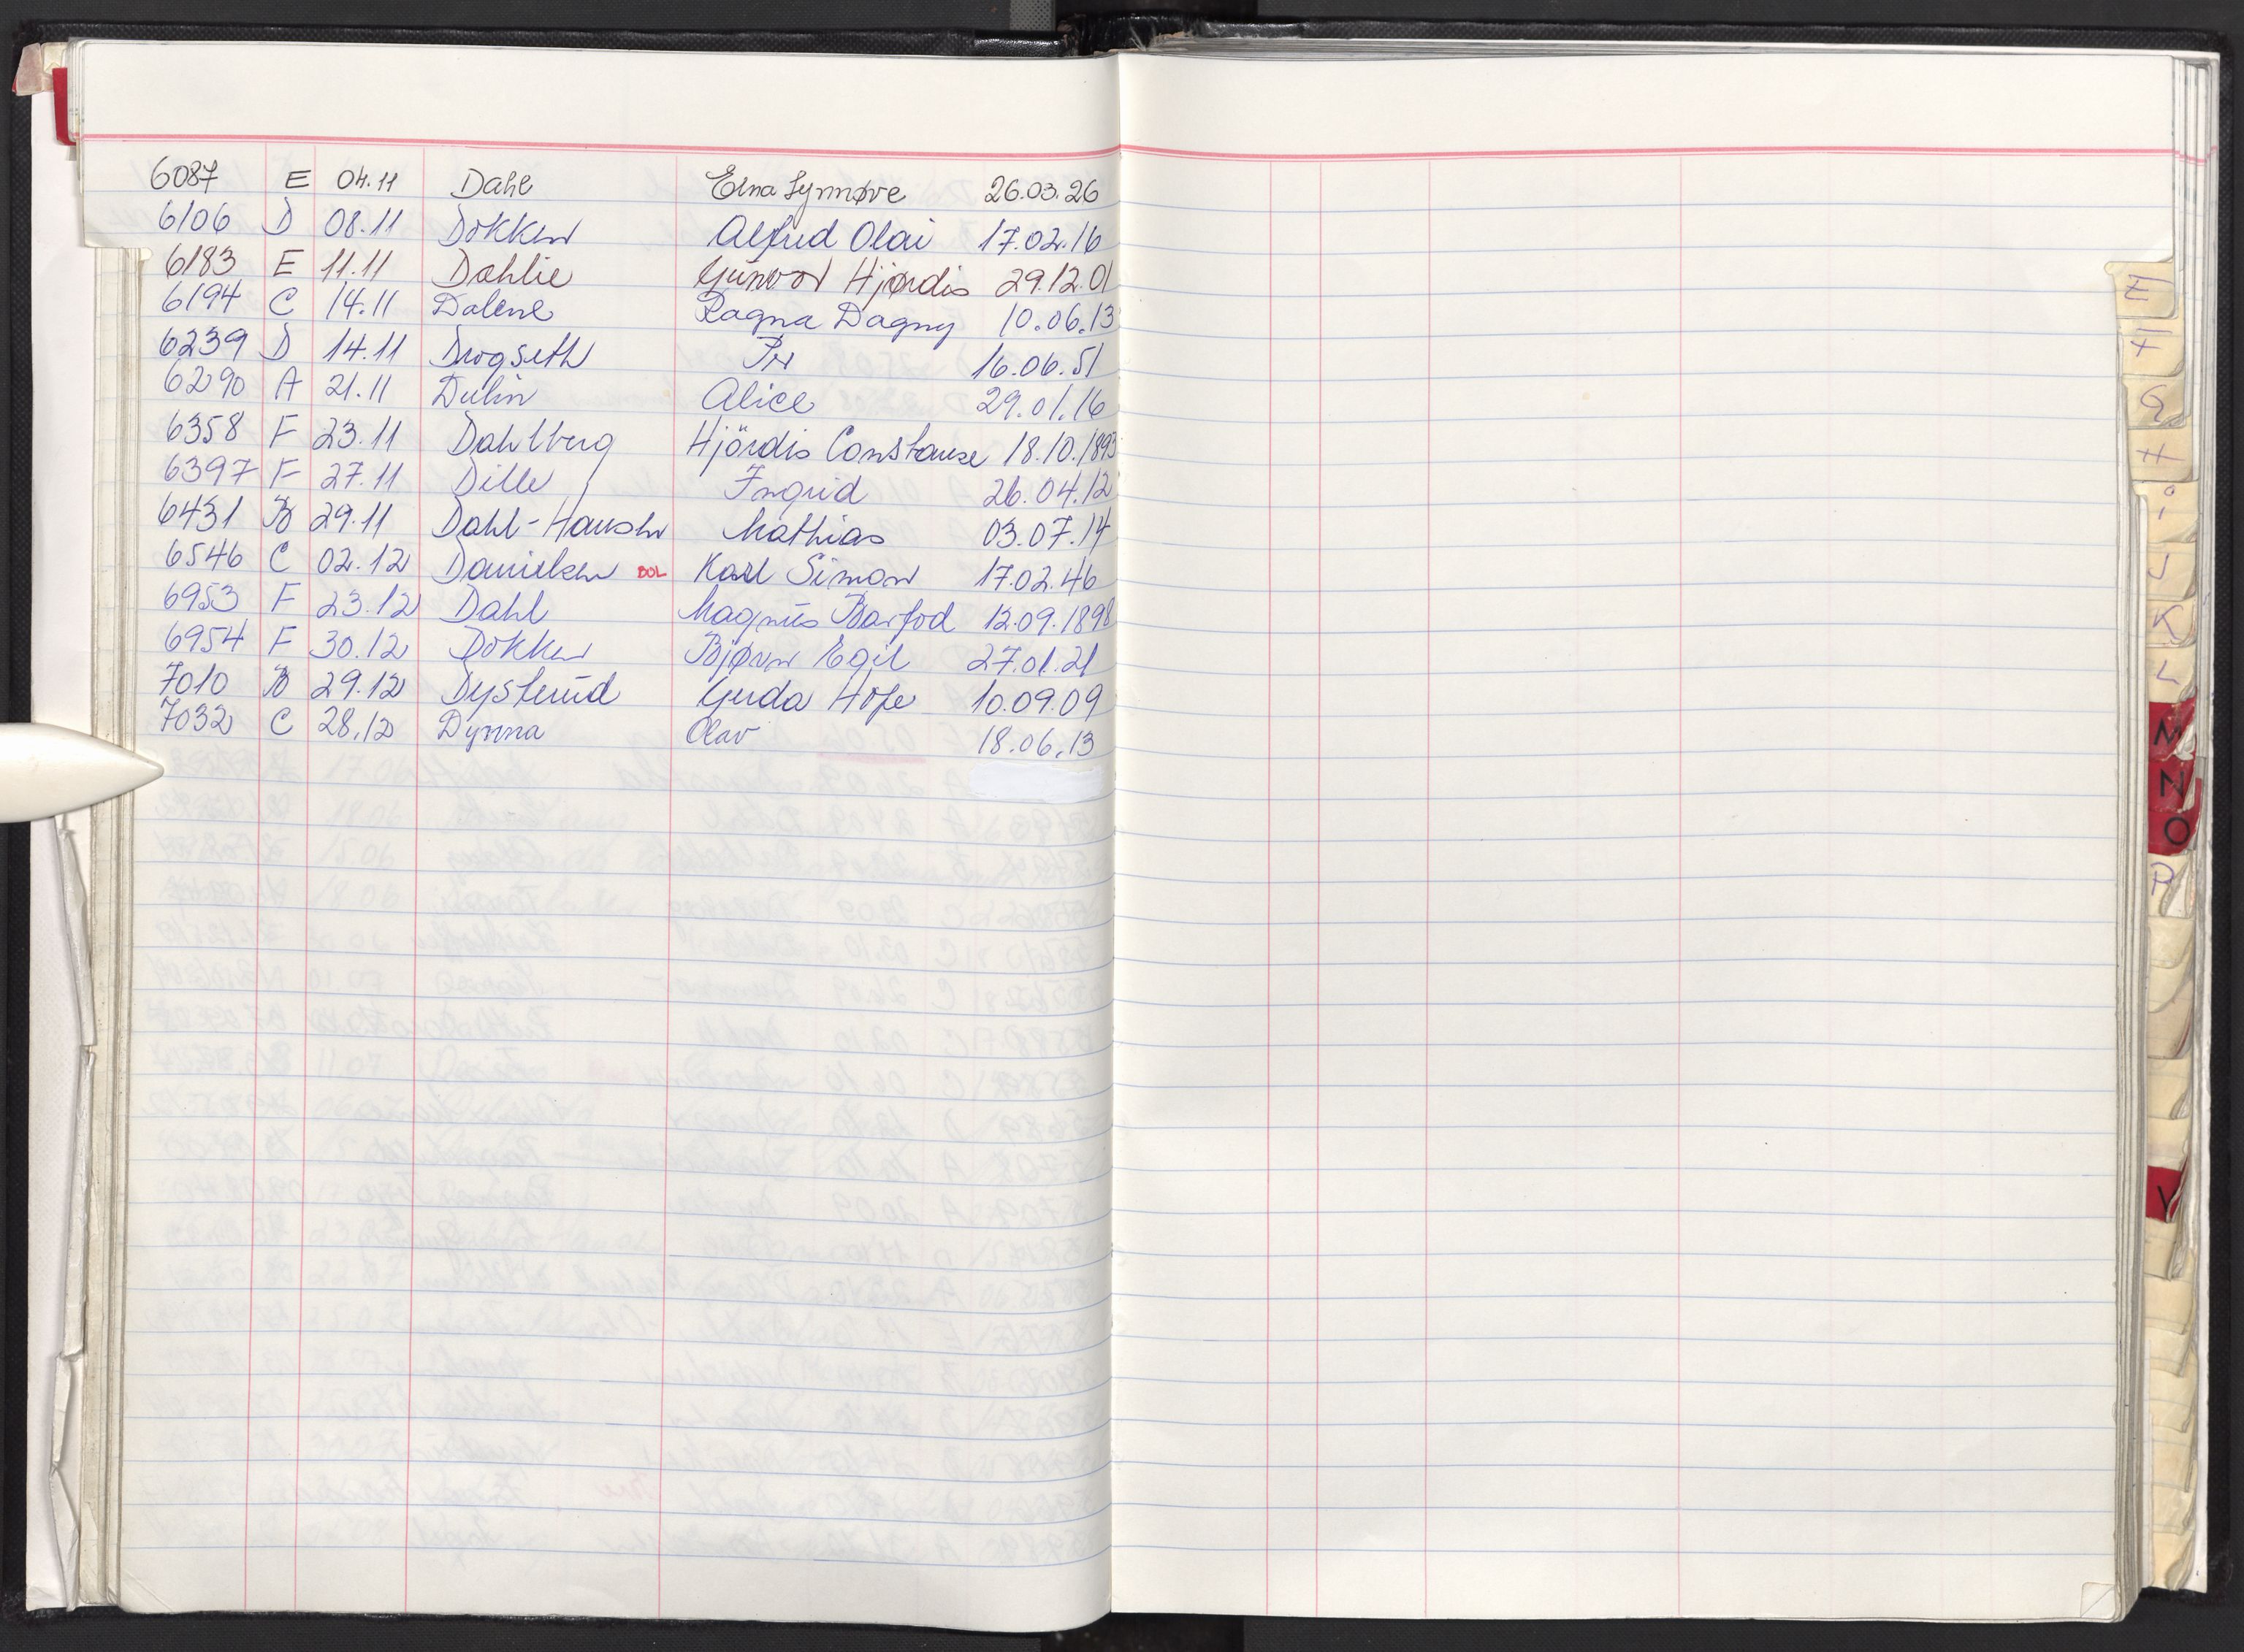 6087 E 04.11 Dahl Edna Synnøve 26.03.26
6106 D 08.11 Dokken Alfred Olai 17.02.16
6183 E 11.11 Dahlie Gunvor Hjørdis 29.12.01
6194 C 14.11 Dalene Ragna Dagny 10.06.13
6239 D 14.11 Drogseth Per 16.06.51
6290 A 21.11 Dulin Alice 29.01.16
6358 F 23.11 Dahlberg Hjördis Constanse 18.10.1893
6397 F 27.11 Dille Ingrid 26.04.12
6431 B 29.11 Dahl-Hansen Mathias 03.07.14
6546 C 02.12 Danielsen DOL Karl Simon 17.02.46
6953 F 23.12 Dahl Magnus Barfod 12.09.1898
6954 F 30.12 Dokken Bjørn Egil 27.01.21
7010 B 29.12 Dysterud Gerda Hope 10.09.09
7032 C 28.12 Dynna Olav 18.06.13
E
F
G
H
i
J
K
L
M
N
O
P
V